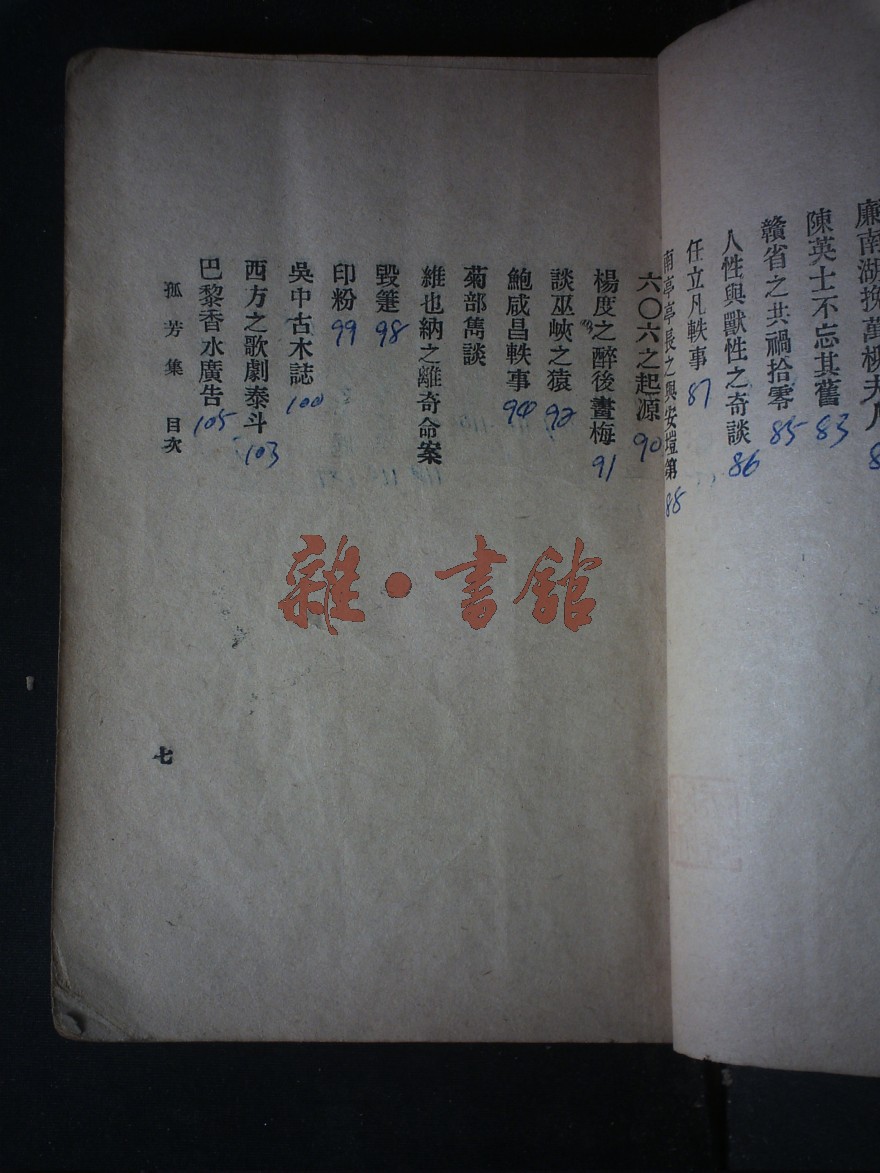 廉南湖挽萬柳夫人
陳英士不忘其舊 83
贛省之共禍拾零 85
人性與獸性之奇談 86
任立凡軼事 87
南亭亭長之與安塏第 88
六〇六之起源 90
楊度之醉後畫梅 91
談巫峽之猿 92
鮑咸昌軼事 94
菊部雋談
維也納之離奇命案
毀篷 98
印粉 99
吳中古木誌 100
西方之歌劇泰斗 103
巴黎香水廣告 105
孤芳集 目次
七
雜·書館